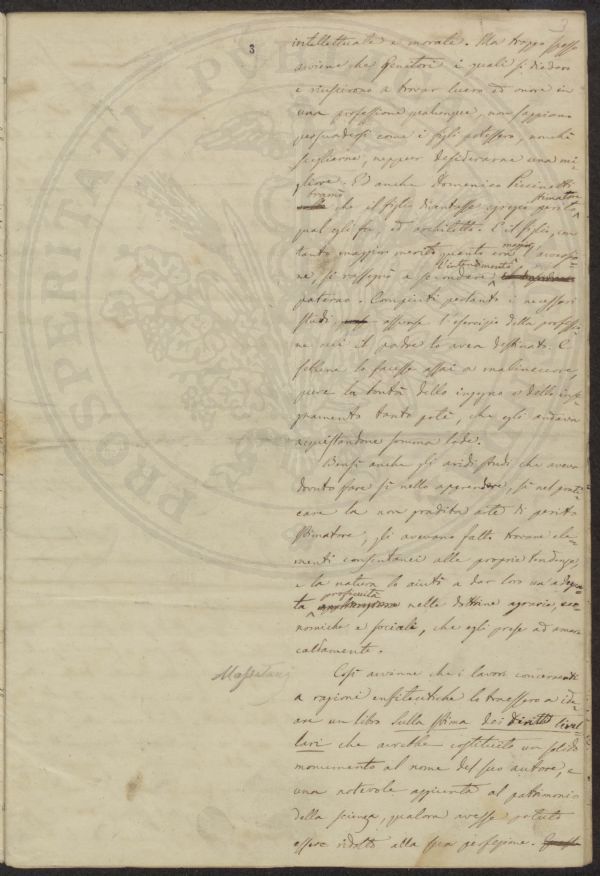 3
3
intellettuale e morale. Ma troppo spesso
avviene che Genitori i quali si diedero
e riuscirono a trovar lucro ed onore in
una professione qualunque, non sappiano
persuadersi come i figli potessero, nonchè
sceglierne, neppur desiderarne una mi=
gliore. Ed anche Domenico
bramò stimatore
che il figlio diventasse egregio perito
qual egli fu, ed architetto. E il figlio, con
tanto maggior merito quanto era maggior avversio=
ne, si rassegnò a secondare l'intendimento
paterno. Compiuti pertanto i necessari
studi, assunse l'esercizio della professio
ne cui il padre lo avea destinato. E
sebbene lo facesse assai a malincuore,
pure la bontà dello ingegno e dello inse
gnamento tanto potè, che egli andava
acquistandone somma lode.
Bensì anche gli aridi studi che aveva
dovuto fare sì nello apprendere, sì nel prati
care la non gradita arte di perito
stimatore, gli avevano fatto trovare ele=
menti consentanei alle proprie tendenze,
e la natura lo aiutò a dar loro un'adegua=
ta prosperità nelle dottrine agrarie, eco=
nomiche e sociali, che egli prese ad amare
caldamente.
Così avvenne che i lavori concernenti
a ragioni enfiteutiche lo traessero a ide=
are un libro sulla stima dei diritti livel=
lari che avrebbe costituito un solido
monumento al nome del suo autore, e
una notevole aggiunta al patrimonio
della scienza, qualora avesse potuto
essere ridotto alla sua perfezione.
PROSPERITATI PUBLICAE